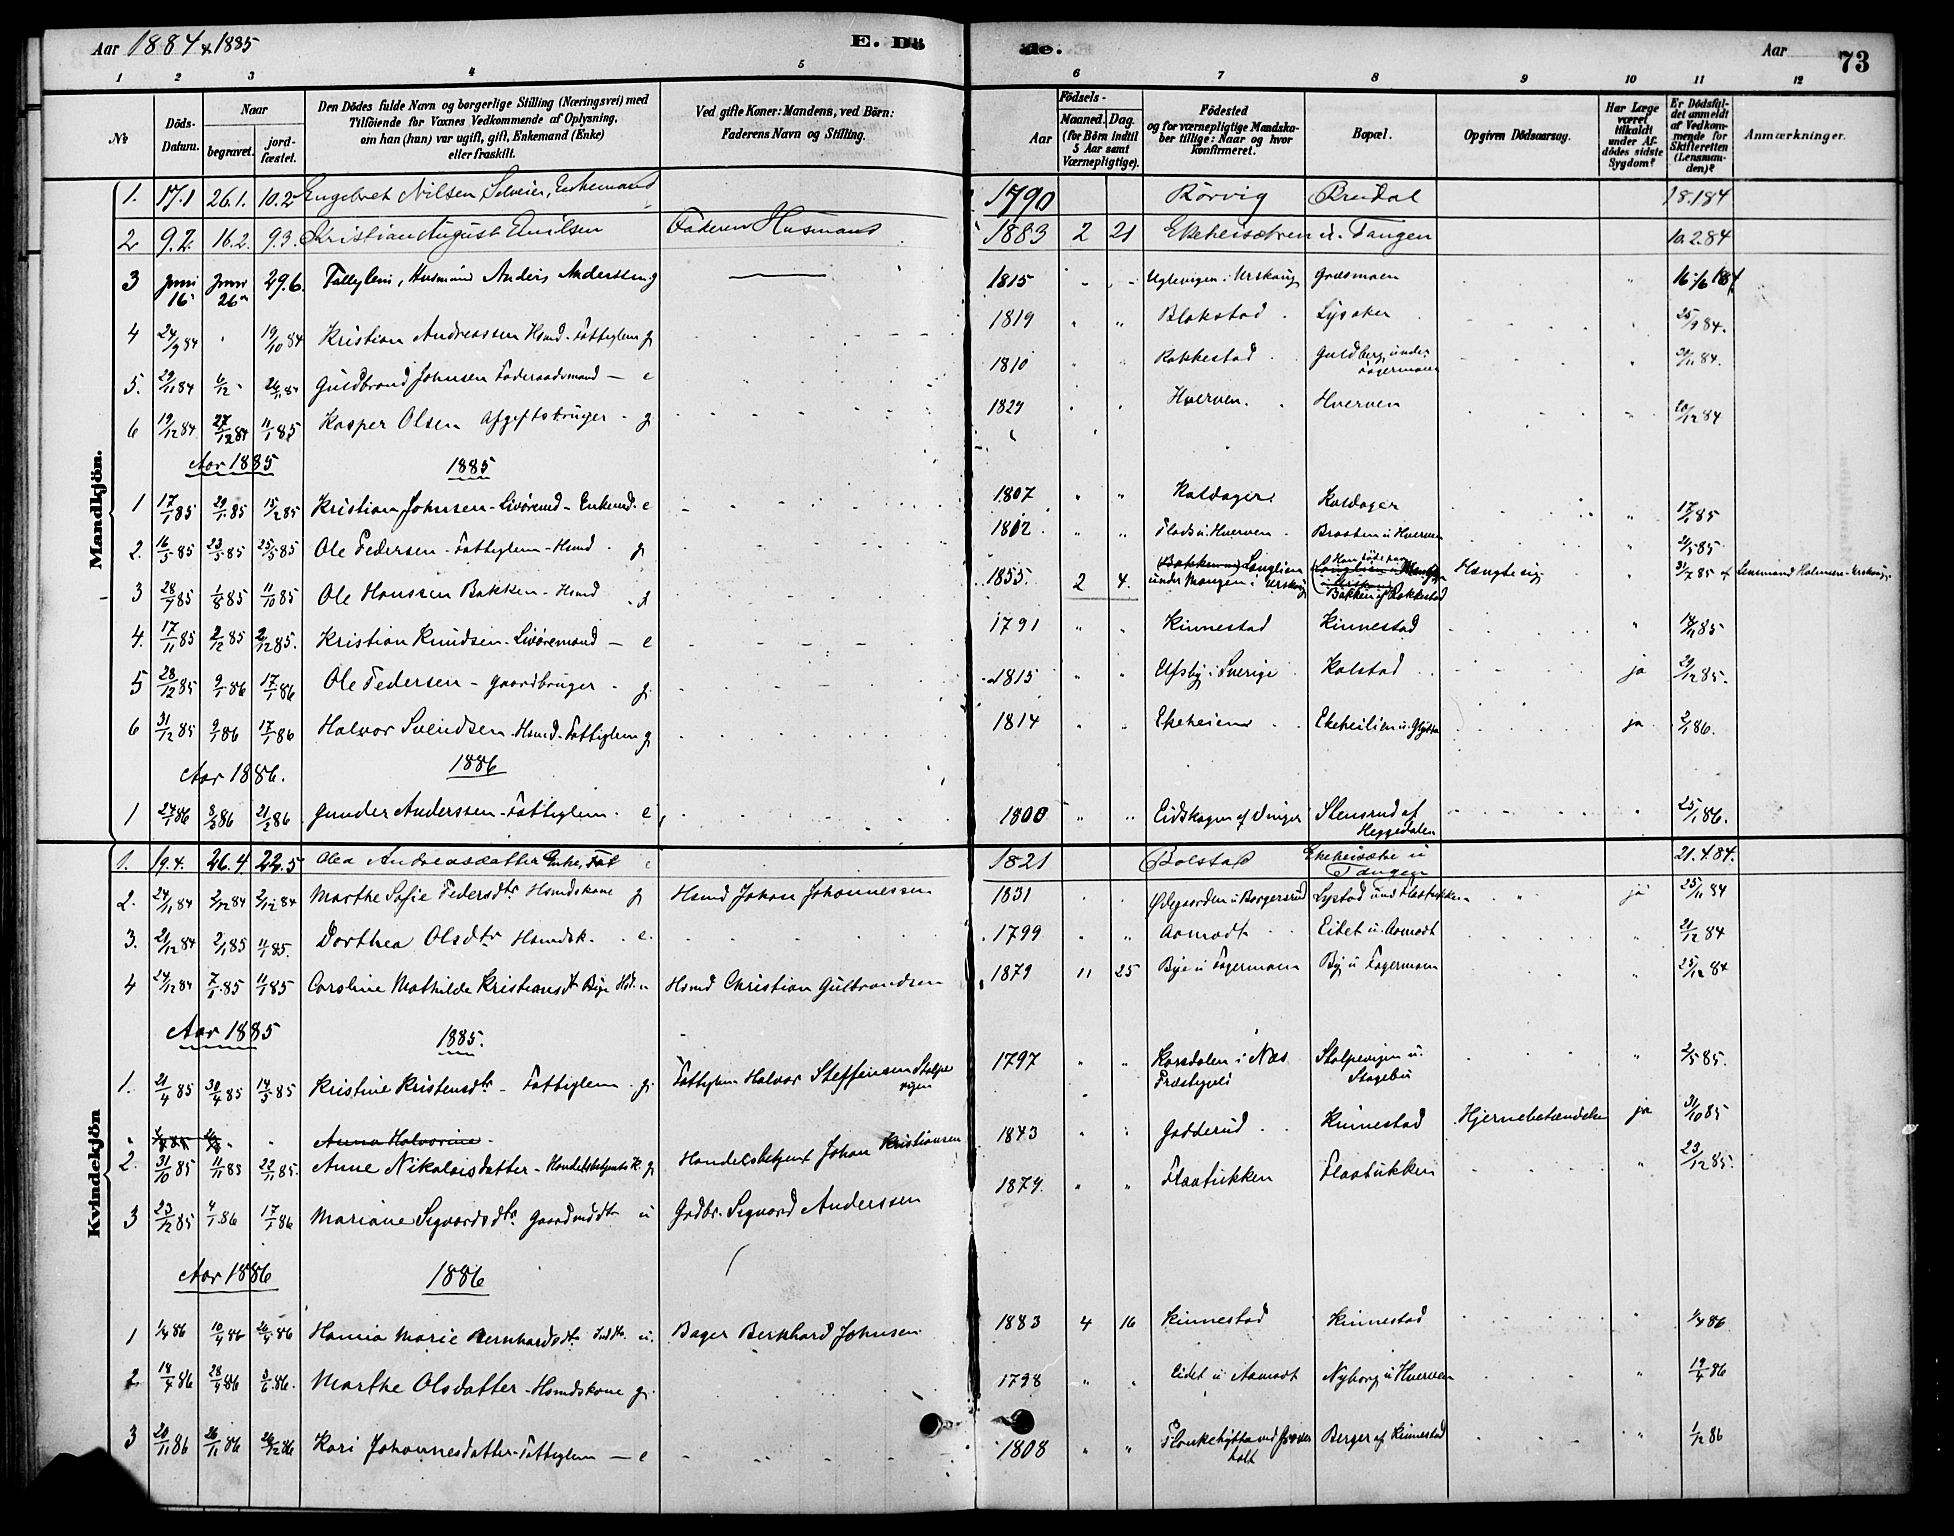 Aar 1884 & 1885 E. Dö
de. Aar 73
1 2 3 4 5 6 7 8 9 10 11 12
№
Döds-Datum.
Naar
begravet.
jord-fæstet.
Den Dödes fulde Navn og borgerlige Stilling (Næringsvei) med
Tilföiende for Voxnes Vedkommende af Oplysning,
om han (hun) var ugift, gift, Enkemand (Enke)
eller fraskilt.
Ved gifte Koner: Mandens, ved Börn:
Faderens Navn og Stilling.
Födsels-
Aar
Maaned. Dag.
(for Börn indtil
5 Aar samt
Værnepligtige).
Födested
og for værnepligtige Mandska-
ber tillige: Naar og hvor
konfirmeret.
Bopæl.
Opgiven Dödsaarsag.
Har Læge
været
tilkaldt
under Af-
dödes sidste
Sygdom?
Er Dödsfal-
det anmeldt
af Vedkom-
mende for
Skifteretten
(Lensman-
den)?
Anmærkninger.
Mandkjön.
1. 17.1 26.1. 10.2 Engebret Nilsen Enkemand 1790 Rörvig 18.1 84
2 9.2. 16.2. 9.3. Kristian August Emilsen Faderen Husmand 1883 2 21 Ekeheisætren u. Tangen 10.2.84
3 Juni 16 Juni 26 29.6. Fattiglem, Husmand Anders Anderssen g 1815 " " i Urskoug " 16/6 184
4 24/9 84 " 19/10 84 Kristian Andreassen Hsmd. Fattiglem g 1819 " " Blakstad Lysaker " 25/9 84.
5. 29/11 84 6/12 " Guldbrand Johnsen Föderaadsmand - e 1810 " " Rakkestad Guldberg under Fagermoen " 84.
6 19/12 84 27/12 84 11/1 85 Kasper Olsen Afgiftsbruger - g 1829 " " Hverven. Hverven " 20/12 84
Aar 1885 1885
1 17/1 85 29/1 85 15/2 85 Kristian Johnsen - Livöremd - Enkemd. e 1807 " " Kaldager Kaldager " 17/1 85
2. 16/5 85 23/5 85 25/5 85 Ole Pedersen - Fattiglem - Hsmd. g 1802 " " Plads u. Hverven Braaten u Hverven " 85
3 28/7 85 1/8 85 11/10 85 Ole Hanssen Bakken - Hsmd g 1855. 2 4. Langlien under Mangen i Urskoug Bakken af Rakkestad Hængte sig " 31/7 85 af Lensmand Holmsen Urskoug
4. 17/11 85 2/12 85 2/12 85. Kristian Knudsen - Livöremand - e 1791 " " Kinnestad Kinnestad " 85
5 28/12 85 9/1 86 17/1 86 Ole Pedersen - Gaardbruger - g. 1815 " " i Sverige Kolstad ja 29/12 85.
6 31/12 85 9/1 86 17/1 86 Halvor Svendsen Hsmd. Fattiglem g 1814 " " Ekeheien Ekeheilien u. ja 2/1 86.
Aar 1886. 1886
1 24/1 86 86 21/2 86 Gunder Anderssen - Fattiglem. e 1800 " " Eidskogen af Vinger Stensrud af Heggedalen " 25/1 86.
Kvindekjön
1. 19.4. 26.4 22.5 Olea Andreasdatter Enke, Fat e 1821 Bolstad Ekeheisætre u Tangen 21.4.84.
2. 24/11 84 2/12 84 2/12 84 Marthe Sofie Pedersdtr Hsmdskone g Hsmd Johan Johannessen 1831 " " Ödegaarden u Borgersrud Lystad und Flaatukken ja 25/11 84
3. 21/12 84 2/1 85 11/1 85. Dorthea Olsdtr Hsmdsk. e. 1799 " " Aamodt Eidet u. Aamodt " 21/12 84
4 24/12 84 7/1 85 11/1 85 Caroline Mathilde Kristiansdt Bye Hsd. u Hsmd Christian Gulbrandsen 1879 11 25 Bye u Fagermoen By u Fagermoen " 25/12 84
Aar 1885 1885.
1. 21/4 85 30/4 85 14/5 85 Kristine Kristensdtr - Fattiglem. g. Fattiglem Halvor Steffensen Stolpevigen 1797 " " Korsdalen i Næs Præstegjeld Stolpevigen u. Stagebu " 2/5 85.
" Anna Halvorine
2. 31/10 85 11/11 85 22/11 85. Anne Nikolaisdatter - Handelsbetjents K. g. Handelsbetjent Johan Kristiansen 1843 " " Gadderud Kinnestad Hjernebetændelse ja 31/10 85
3 23/12 85 4/1 86 17/1 86 Mariane Sigvardsdtr. Gaardmdtr u Grdbr. Sigvard Anderssen 1874. " " Flaatukken Flaatukken " 23/12 85.
Aar 1886 1886
1 1/4 86 10/4 86 26/4 86 Hanna Marie Bernhardsdtr Inddtr. u. Bager Bernhard Johnsen 1883 4 16 Kinnestad Kinnestad " 1/4 86
2 18/4 86 28/4 86 3/6 86. Marthe Olsdatter - Hsmdskone g. 1798 " " Eidet u Aamodt Nyborg u Hverven " 19/4 86
3 20/11 86 26/11 86 26/12 86 Kari Johannesdatter - Fattiglem - e 1808 " " Plankehytta ved Berger af Kinnestad " 1/12 86